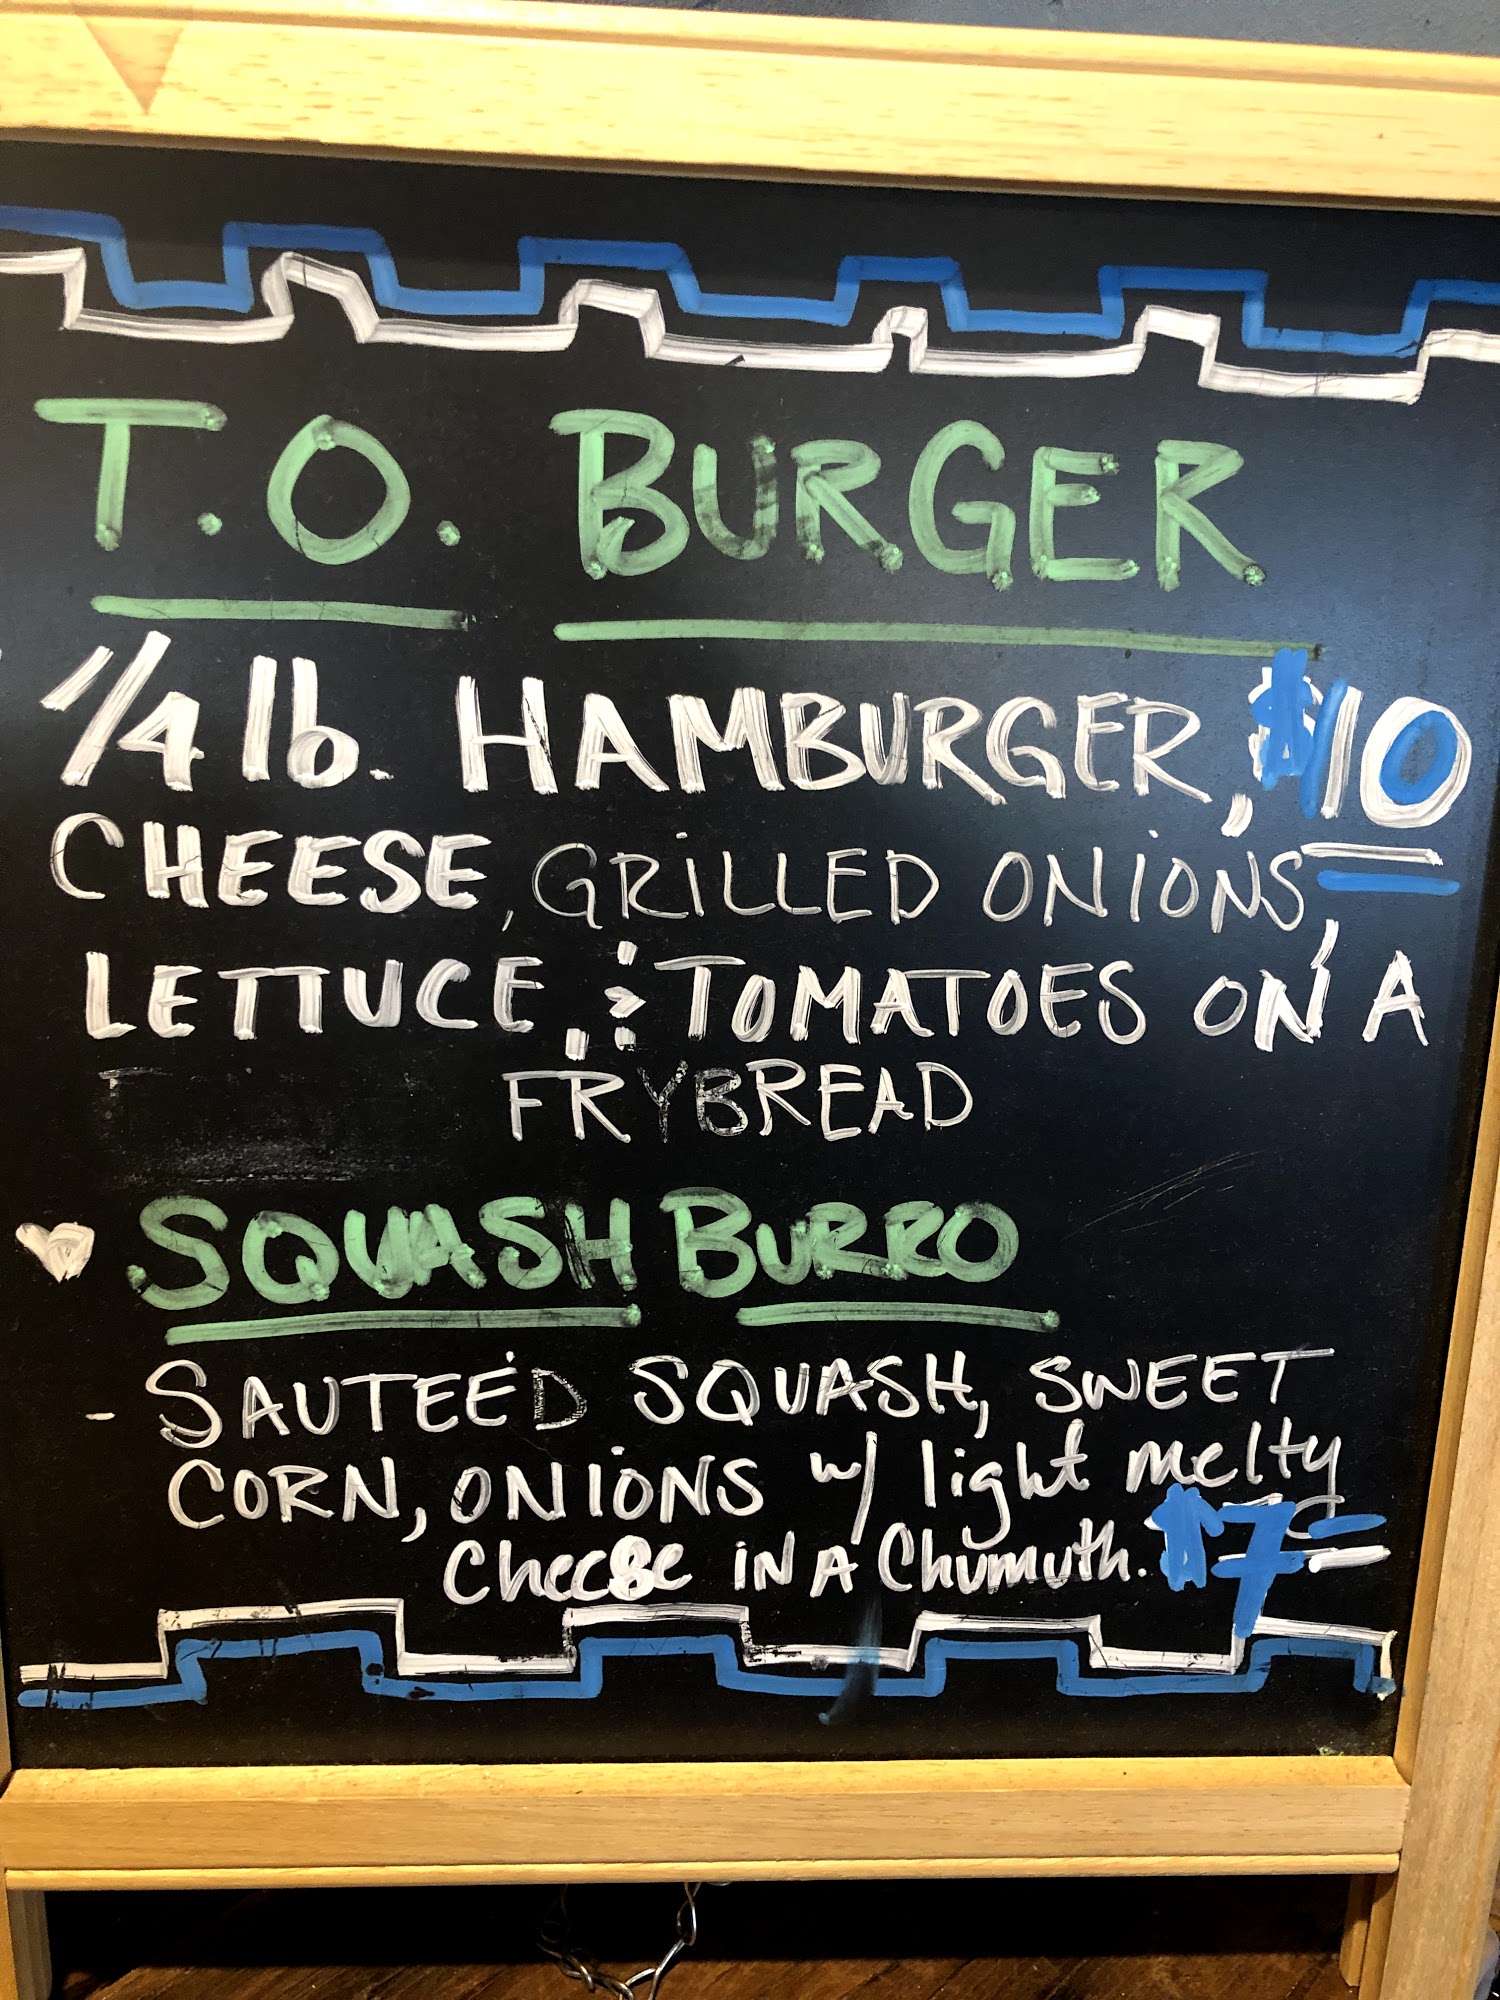 T.O. BURGER
1/4 lb. HAMBURGER, $10
CHEESE, GRILLED ONIONS,
LETTUCE, & TOMATOES ON A
FRYBREAD
SQUASH BURRO
- SAUTEED SQUASH, SWEET
CORN, ONIONS w/ light melty
cheese IN A Chumuth. $7